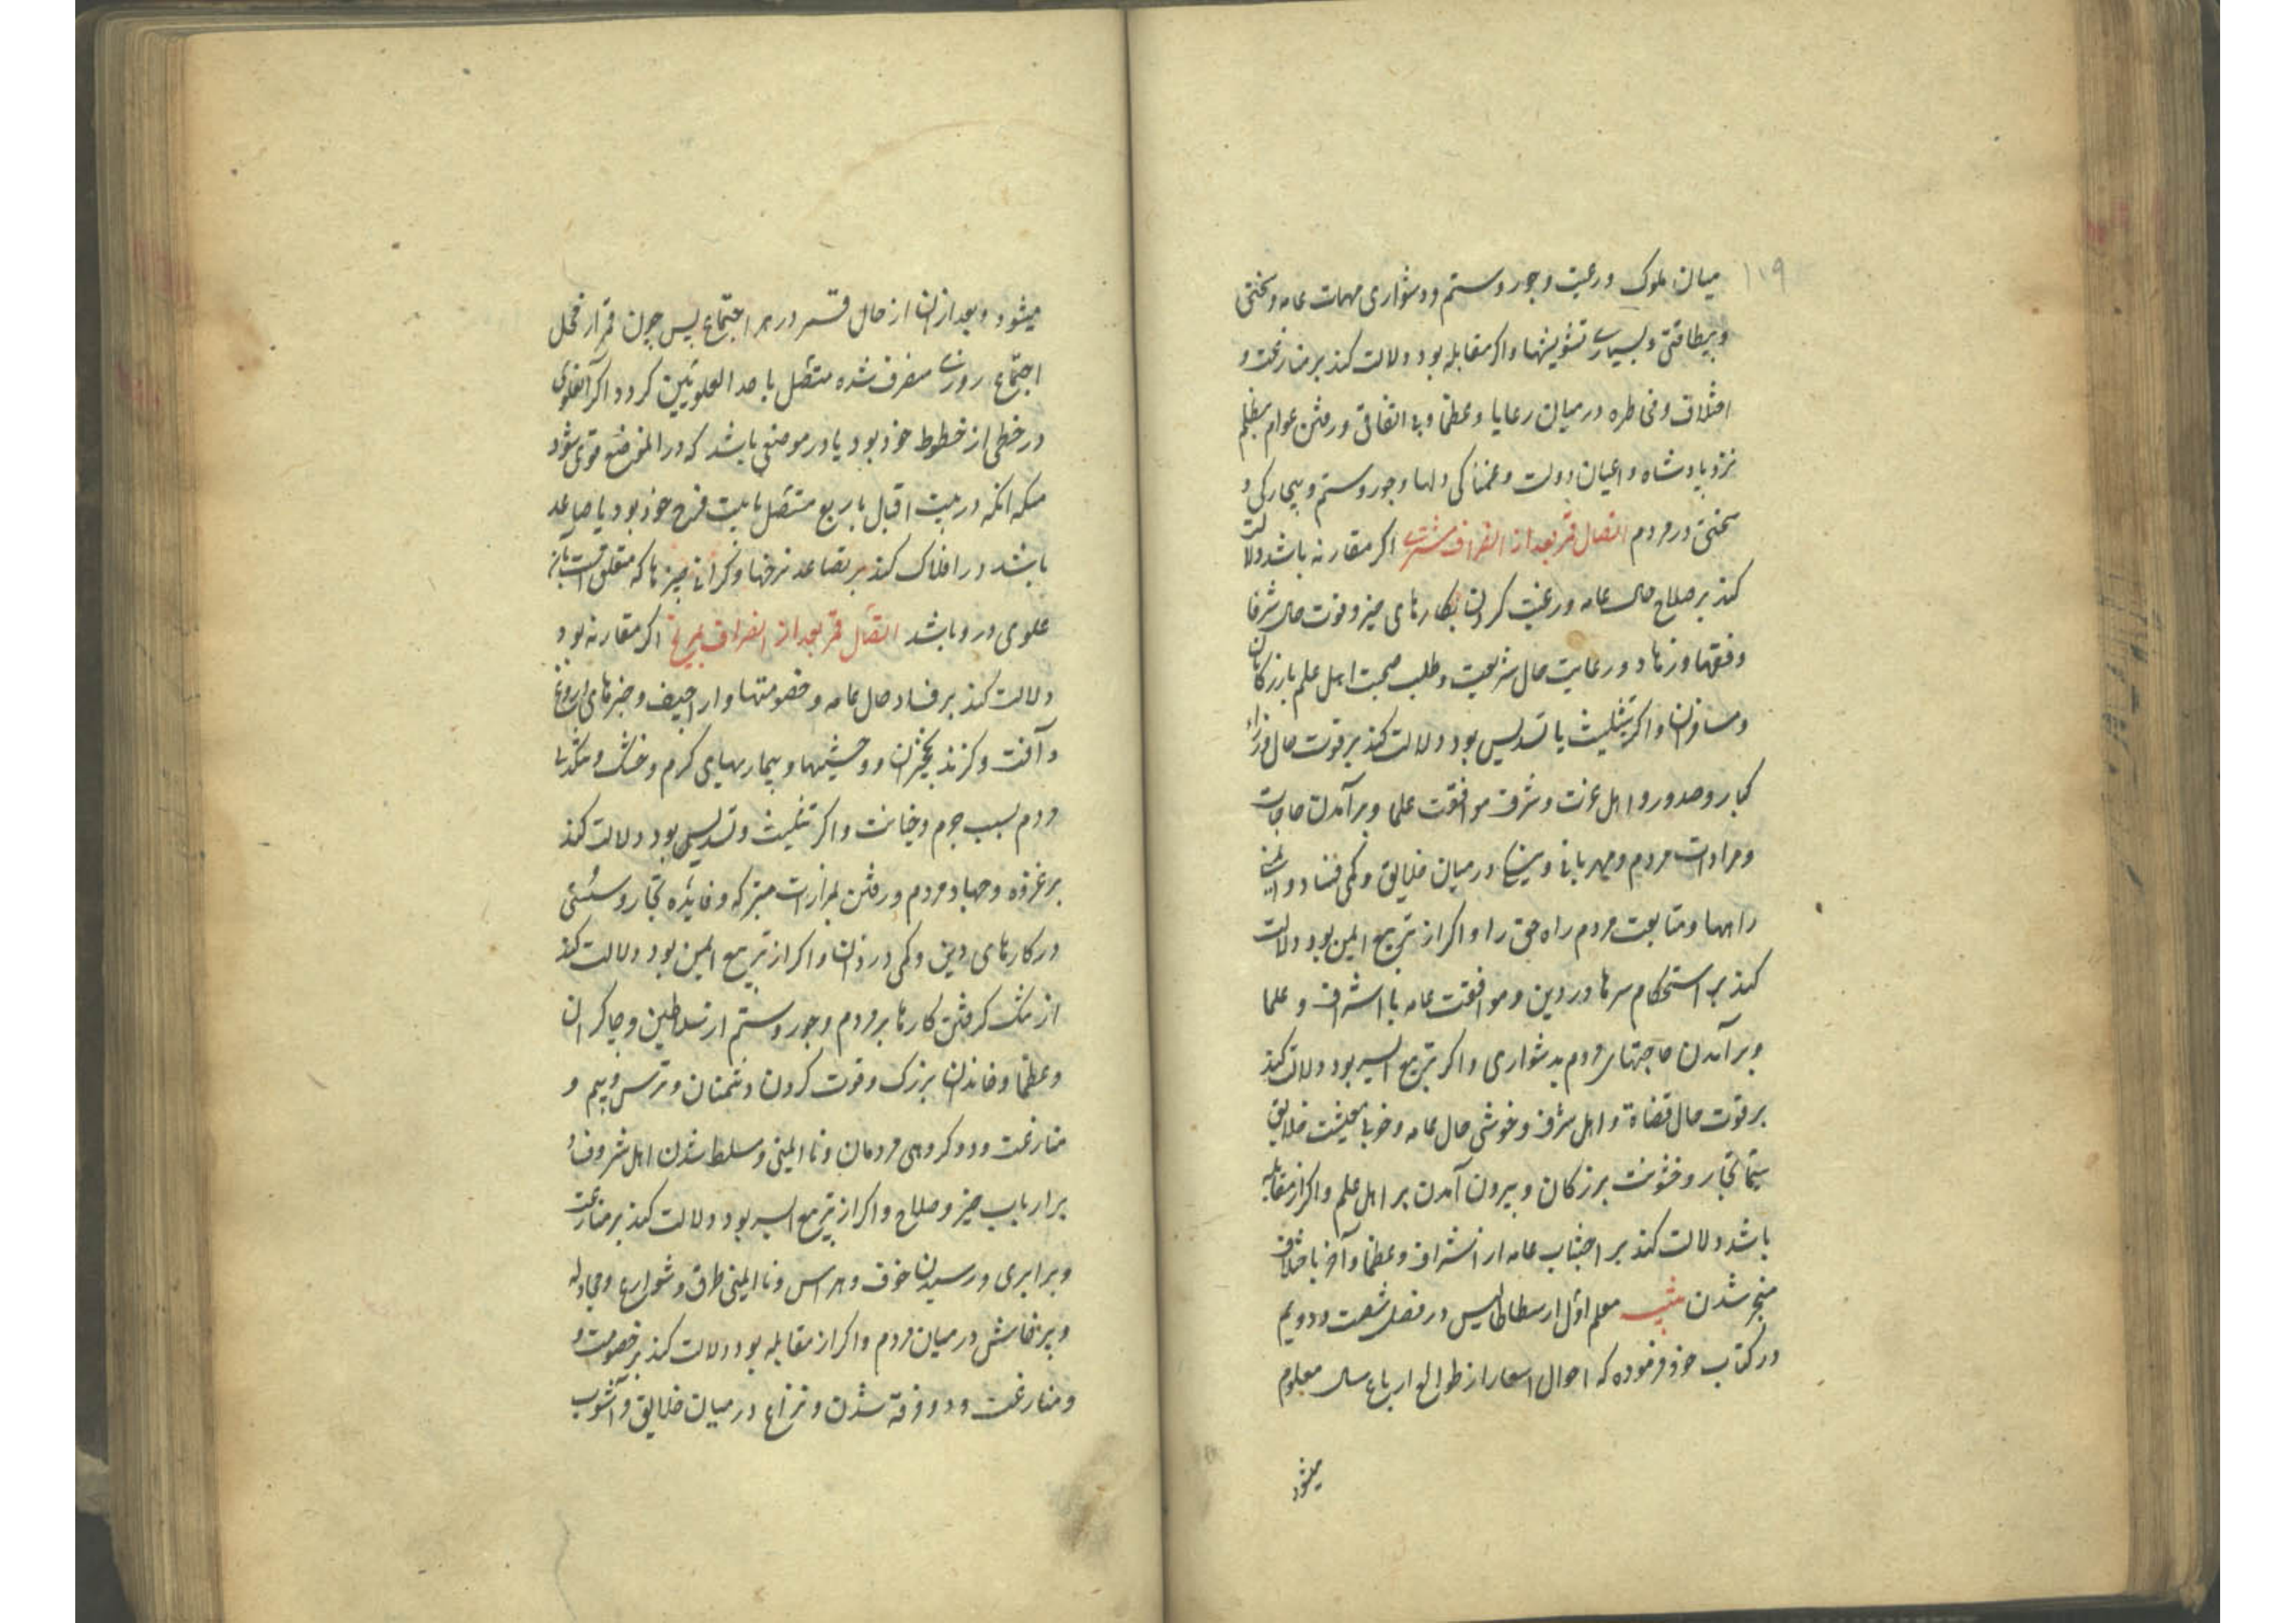 ۱۱۹
میان ملوک و رعیت و جور و ستم و دشواری مهمات عامه و سختی
و بیطاقتی و بسیاری تشویشها و اکر مقابله بود دلالت کند بر منازعت و
اختلاف و مخاطره در میان رعایا و عظما و بی اتفاقی و رفتن عوام بتظلم
نزد پادشاه و اعیان دولت و غمناکی دلها و جور و ستم و بیچارکی و
سختی در مردم اتصال قمر بعد از انصراف مشتری اکر مقارنه باشد دلالت
کند بر صلاح حال عامه و رغبت کردن بکارهای خیر و قوت حال شرفا
و فقها و زهاد و رعایت حال شریعت و طلب صحبت اهل علم بازرکانان
و مسافران و اکر بتثلیث یا تسدیس بود دلالت کند بر قوت حال وزراء
کبار و صدور و اهل عزت و شرف موافقت علما و برآمدن حاجات
و مرادات مردم و مهربانی و نیکی در میان خلایق و کمی فساد و ایمنی
راهها و متابعت مردم راه حق را و اکر از تربیع ایمن بود دلالت
کند بر استحکام سرها در دین و موافقت عامه با اشراف و علما
و برآمدن حاجتهای مردم بدشواری و اکر بتربیع ایسر بود دلالت کند
بر قوت حال قضاة و اهل شرف و خوشی حال عامه و خوبی معیشت خلایق
سیما تجار و خشونت بزرکان و بیرون آمدن بر اهل علم و اکر از مقابله
باشد دلالت کند بر اجتناب عامه از اشراف و عظما و آخر باختلاف
منجر شدن معلم اول ارسطاطالیس در فصل شصت و دویم
در کتاب خود فرموده که احوال اسعار از طوالع ارباع سال معلوم
میشود
میشود و بعد از آن از حال قمر در هر اجتماع پس چون قمر از محل
اجتماع روزی منصرف شده متصل باحد العلویین کردد اکر آن علوی
در خطی از خطوط خود بود یا در موضعی باشد که در ان موضع قوی شود
مکر انکه در بیت اقبال یا بربع متصل بابیت فرح خود بود یا صاعد
باشد در افلاک کند بر تصاعد نرخها و کرانی چیزها که متعلق است بان
علوی در و باشد اتصال قمر بعد از انصراف بمریخ اکر مقارنه بود
دلالت کند بر فساد حال عامه و خصومتها و اراجیف و خبرهای دروغ
و آفت و کزند و بیماریهای کرم و خشک
مردم بسبب جرم و خیانت و اکر تثلیث و تسدیس بود دلالت کند
بر غزوه و جهاد مردم و رفتن بمزارات متبرکه و فایده تجار و سستی
در کارهای دین و کمی دزدان و اکر از تربیع ایمن بود دلالت کند
از تنک کرفتن کارها بر مردم و جور و ستم از سلاطین و چاکران
و عظما و خاندان بزرک و قوت کردن دشمنان و ترس و بیم و
منازعت و دو کروهی مردمان و ناایمنی و مسلط شدن اهل شر و فساد
بر ارباب خیر و صلاح و اکر از تربیع ایسر بود دلالت کند بر منازعت
و برابری و رسیدن خوف و هراس و ناایمنی طرق و شوارع و مجادله
و پرخاش در میان مردم و اکر از مقابله بود دلالت کند بر خصومت و
و منازعت و دو فرقه شدن و نزاع در میان خلایق و آشوب